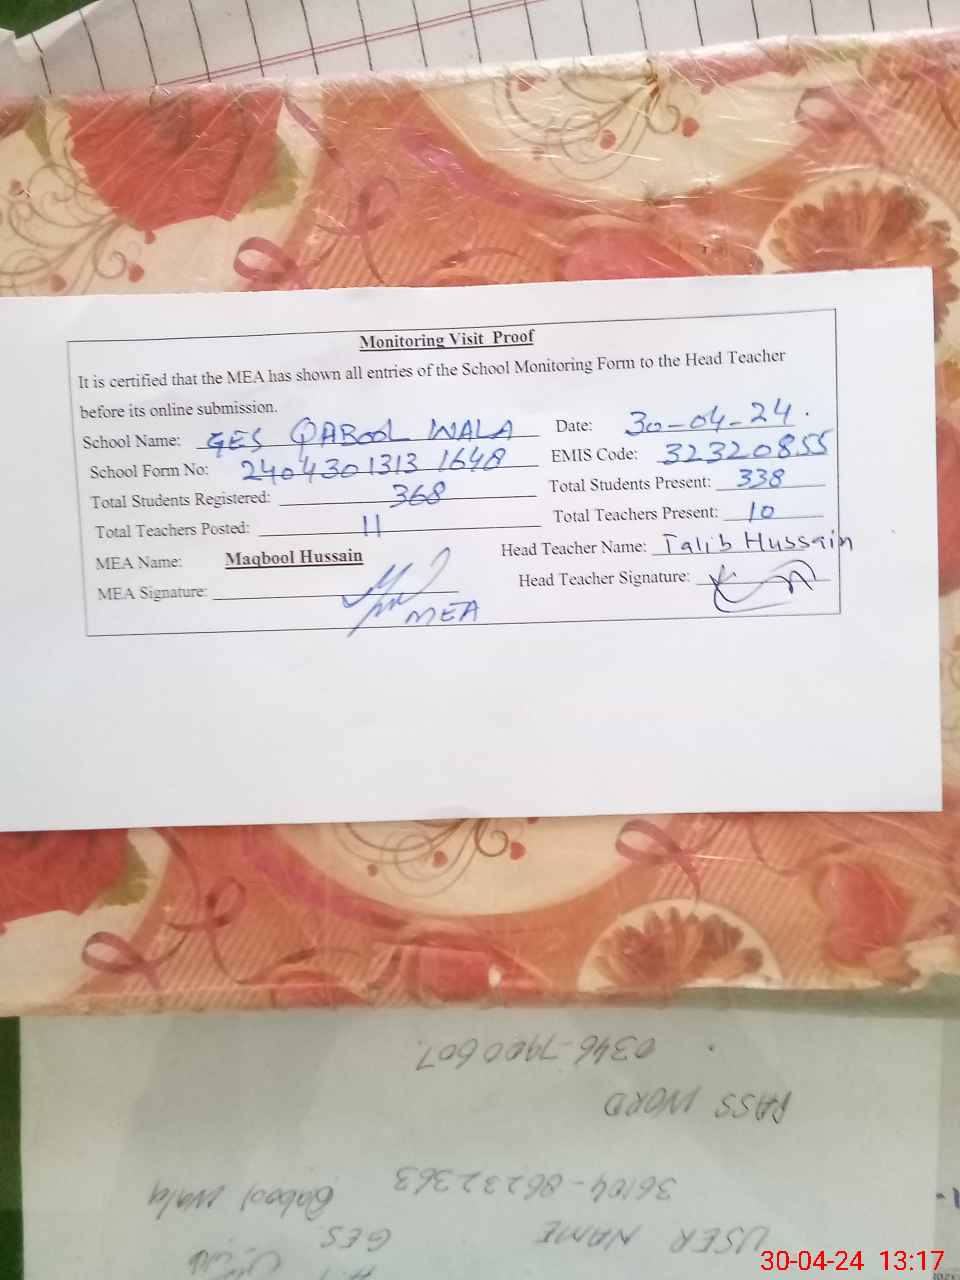 Monitoring Visit Proof
It is certified that the MEA has shown all entries of the School Monitoring Form to the Head Teacher
before its online submission.
School Name: GES QABOOL WALA Date: 30-04-24.
School Form No: 2404301313 1648 EMIS Code: 32320855
Total Students Registered: 368 Total Students Present: 338
Total Teachers Posted: 11 Total Teachers Present: 10
MEA Name: Maqbool Hussain Head Teacher Name: Talib Hussain
MEA Signature: MEA Head Teacher Signature:
USER NAME GES
36104-86232363 Qabool Wala
PASS WORD
0346-7900607.
30-04-24 13:17